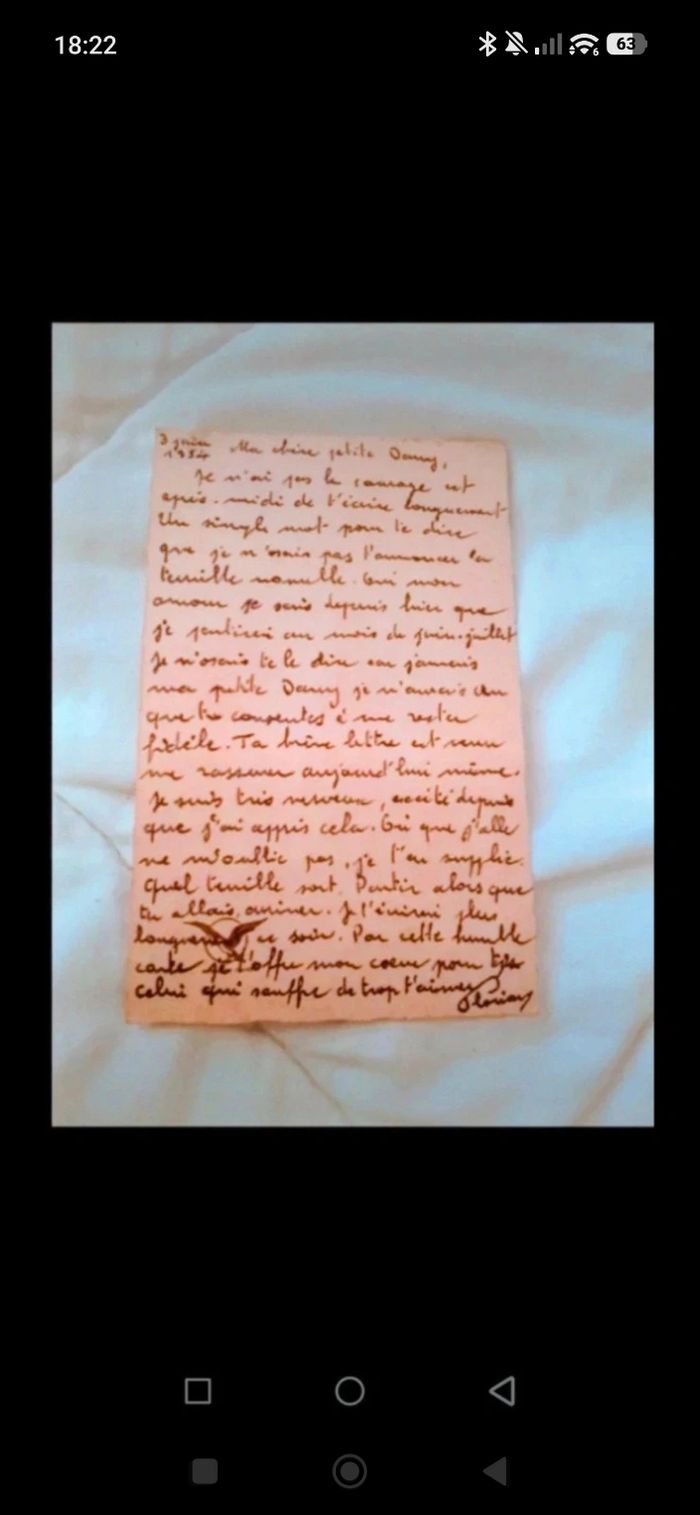 18:22
63
3 juin
1954
Ma chère petite Dany,
Je n'ai pas le courage cet
après-midi de t'écrire longuement
Un simple mot pour te dire
que je n'osais pas t'annoncer la
terrible nouvelle. Oui mon
amour je sais depuis hier que
je partirai au mois de juin-juillet
Je n'osais te le dire car jamais
ma petite Dany je n'aurais cru
que tu consentes à me rester
fidèle. Ta brève lettre est venue
me rassurer aujourd'hui même.
Je suis très nerveux, excité depuis
que j'ai appris cela. Où que j'aille
ne m'oublie pas, je t'en supplie.
Quel terrible sort. Partir alors que
tu allais arriver. Je t'écrirai plus
ce soir. Par cette humble
carte je t'offre mon coeur pour
celui qui souffre de trop t'aimer